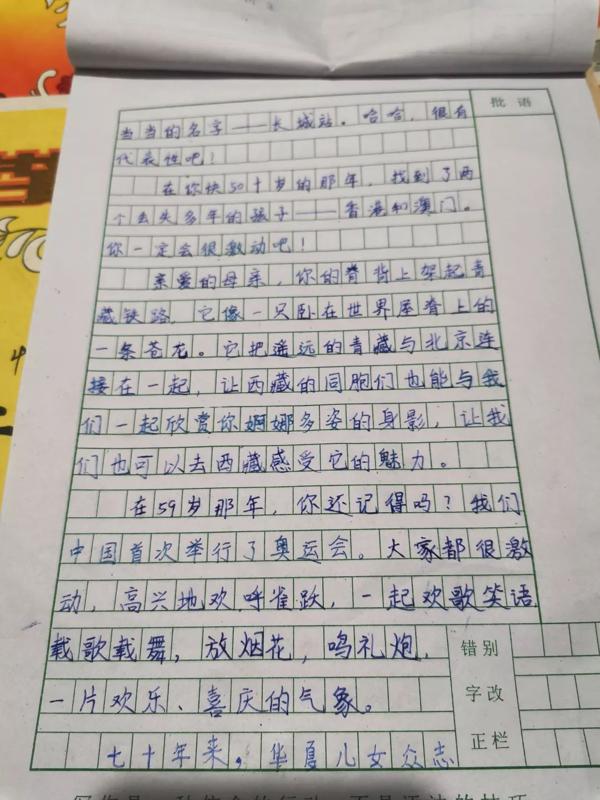 批语
当当的名字——长城站。哈哈，很有
代表性吧！
在你快50十岁的那年，找到了两
个丢失多年的孩子——香港和澳门。
你一定会很激动吧！
亲爱的母亲，你的脊背上架起青
藏铁路，它像一只卧在世界屋脊上的
一条苍龙。它把遥远的青藏与北京连
接在一起，让西藏的同胞们也能与我
们一起欣赏你婀娜多姿的身影，让我
们也可以去西藏感受它的魅力。
在59岁那年，你还记得吗？我们
中国首次举行了奥运会。大家都很激
动，高兴地欢呼雀跃，一起欢歌笑语
载歌载舞，放烟花，鸣礼炮，
一片欢乐、喜庆的气象。
七十年来，华夏儿女众志
错别
字改
正栏